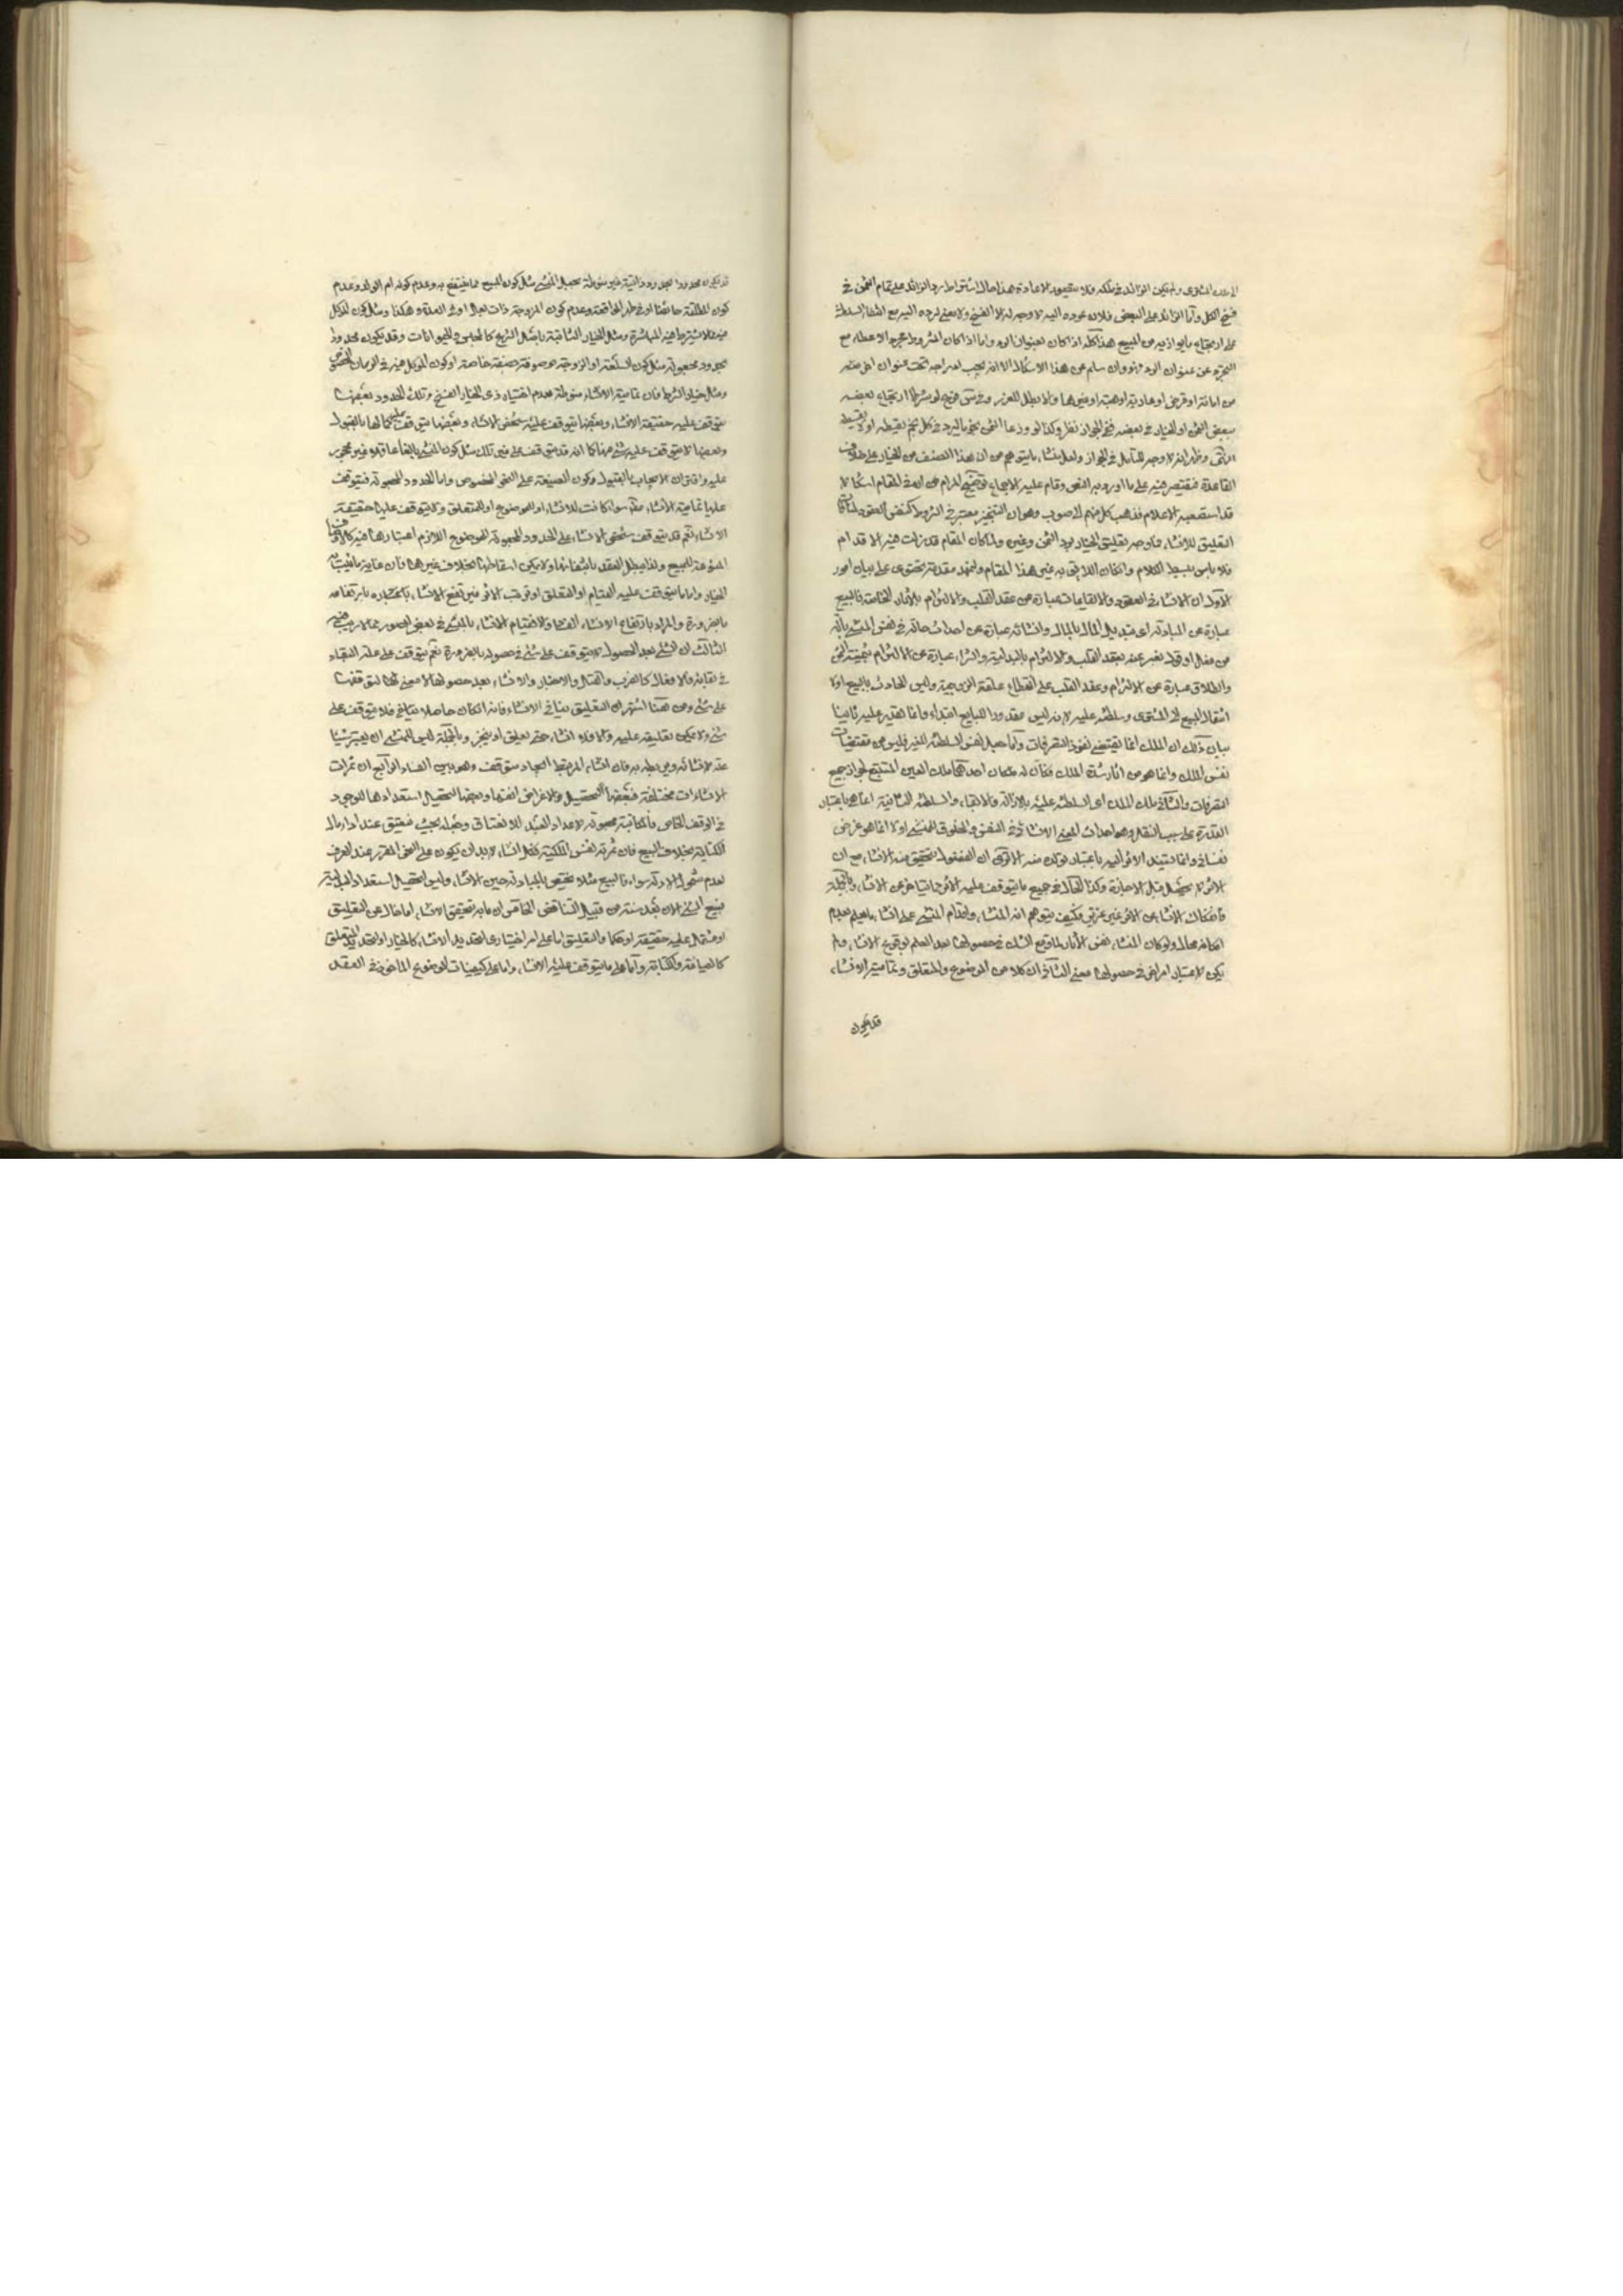 الى ملك المشترى ولم يكن الزائد فى ملكه فلا مقصود للاعادة هذا حال اشتراط رد الزائد على تمام الثمن فى
فسخ الكل وأما الزائد على البعض فلان عوده اليه لا وجه له الا الفسخ ولا معنى لرده اليه مع انتفاء السلطنة
على ارتجاع ما يوازيه من المبيع هذا كله اذا كان بعنوان الرد واما اذا كان المشروط مجرد الاعطاء مع
التجرد عن عنوان الرد وان سلم عن هذا الاشكال الا انه يجب اندراجه تحت عنوان اخر
من امانة او قرض او عارية او هبة او غيرها والا بطل للغرر وفى فسخ لو شرط ارتجاع بعضه
ببعض الثمن او الخيار فى بعضه ففى الجواز نظر وكذا لو وزعا الثمن نجوما ليرد فى كل نجم بقسطه
انتهى وظهر انه لا وجه للتأمل فى الجواز ولعل منشاءه ما يتوهم من ان هذا الصنف من الخيار على خلاف
القاعدة فيقتصر فيه على ما ورد به النص وقام عليه الاجماع توضيح المرام عن ان فى المقام اشكالا
قد استصعبه الاعلام فذهب كل منهم الى صوب وهو ان التنجيز معتبر فى الشروط كنفس العقود
التعليق للانشاء فما وجه تعليق الخيار برد الثمن وغيره ولما كان المقام قد زلت فيه الاقدام
فلا باس ببسط الكلام وان كان اللائق به غير هذا المقام ولنمهد مقدمة تحتوى على بيان امور
الاول ان الانشاء فى العقود والايقاعات عبارة عن عقد القلب والالتزام بالاثار الخاصة فالبيع
عبارة عن المبادلة اى تبديل المال بالمال وانشائه عبارة عن احداث حالة فى نفس المنشئ
من فعل او قول يعبر عنه بعقد القلب والالتزام بالبدلية والشراء عبارة عن الالتزام
والطلاق عبارة عن الالتزام وعقد القلب على انقطاع علقة الزوجية وليس الحادث بالبيع اولا
انتقال المبيع الى المشترى وسلطنته عليه لانه ليس مقدورا للبايع ابتداء وانما يقدر عليه ثانيا
بيان ذلك ان الملك انما يقتضى نفوذ التصرفات وأما جعل نفس السلطنة للغير فليس من مقتضيات
نفس الملك وانما هو من اثار شدة الملك فكان له ملكان احدهما ملك العين المستتبع لجواز جميع
التصرفات والثانى ملك الملك اى السلطنة عليه بالازالة والابقاء والسلطنة الثانية انما هى باعتبار
القدرة على سبب النقل وهو احداث المعنى الانشائى فى النفس والمخلوق للمنشئ اولا انما هو عرض
نفسانى وانما يستند الاثر اليه باعتبار تولده منه الا ترى ان الفضولى يتحقق منه الانشاء مع ان
الاثر لا يحصل قبل الاجازة وكذا الحال فى جميع ما يتوقف عليه الاثر مما يتاخر عن الانشاء وبالجملة
فانفكاك الانشاء عن الاثر غير عزيز فكيف يتوهم انه المنشاء واقدام المنشئ على انشاء ما يعلم بعدم
امكانه محال ولو كان المنشاء نفس الاثار لما وقع الشك فى حصولها بعد العلم بوقوع الانشاء ولم
يكن لاعتبار امر اخر فى حصولها معنى الثانى ان كلا من الموضوع والمتعلق وتمامية الانشاء
قد يكون
قد يكون محدودا بحدود ذاتية غير منوطة بجعل المنشئ مثل كون المبيع مما ينتفع به وعدم كونه ام الولد وعدم
كون المطلقة حائضا او فى طهر المواقعة وعدم كون المزوجة ذات بعل او فى العدة وهكذا ومثل كون الموكل
فيه مما لا يشترط فيه المباشرة ومثل الخيار الثابتة باصل الشرع كالمجلس والحيوانات وقد يكون محدودا
بحدود مجعولة مثل كون السلعة او الزوجة موصوفة بصفة خاصة او كون الموكل فيه فى الزمان
ومثل خيار الشرط فان تمامية الانشاء منوطة بعدم اختيار ذى الخيار الفسخ وتلك الحدود بعضها
يتوقف عليه حقيقة الانشاء وبعضها يتوقف عليه شخص الانشاء وبعضها يتوقف عليه كمالها بالقبول
وبعضها لا يتوقف عليه شئ منها كما انه قد يتوقف على غير تلك مثل كون المنشئ بالغا عاقلا غير محجور
عليه واقتران الايجاب بالقبول وكون الصيغة على النحو المخصوص واما الحدود المجعولة فيتوقف
عليها تمامية الانشاء سواء كانت للانشاء او للموضوع او للمتعلق ولا يتوقف عليها حقيقة
الانشاء نعم قد يتوقف شخص الانشاء على الحدود المجعولة للموضوع اللازم اعتبارها فيه
المنوعة للمبيع ولذا يبطل العقد بانتفائها ولا يمكن اسقاطها بخلاف غيرها فان غاية ما يثبت به
الخيار واما ما يتوقف عليه القيام او التعلق او ترتب الاثر فيرتفع الانشاء بارتفاعه
بالضرورة والمراد بارتفاع الانشاء
الثالث ان الشئ بعد الحصول لا يتوقف على شئ فى حصوله بالضرورة نعم يتوقف على علة البقاء
فى بقائه فالافعال كالضرب والقتل والاخبار والانشاء بعد حصولها لا معنى لتوقفها
على شئ ومن هنا اشتهر ان التعليق ينافى الانشاء فانه ان كان حاصلا فلا يتوقف على
شئ ولا يمكن تعليقه عليه والا فلا انشاء حتى يعلق او ينجز وبالجملة ليس للمنشئ ان يعتبر شيئا
عند الانشاء ويربطه به فان انشاء المرتبط ايجاد متوقف وهو بين الفساد الرابع ان ثمرات
الانشاءات مختلفة فبعضها لتحصيل الاغراض انفسها وبعضها لتحصيل استعدادها للوجود
فى الوقف الخاص فالمكاتبة مجعولة لاعداد العبد للانعتاق وجعله بحيث فيعتق عند اداء مال
الكتابة بخلاف البيع فان ثمرته نفس الملكية فكل انشاء لابد ان يكون على النحو المقرر عند العرف
لعدم شمول الادلة سواه فالبيع مثلا يختص بالمبادلة حين الانشاء وليس لتحصيل استعداد المبادلة
فبيع الشئ الان بعد سنة من قبيل التناقض الخامس ان ما به تحقق الانشاء اما خال عن التعليق
او مشتمل عليه حقيقة او حكما والتعليق اما على امر اختيارى لتحديد الانشاء كالخيار او لتحديد المتعلق
كالضيافة والكتابة وأما على ما يتوقف عليه الانشاء واما على كيفيات الموضوع الماخوذ فى العقد